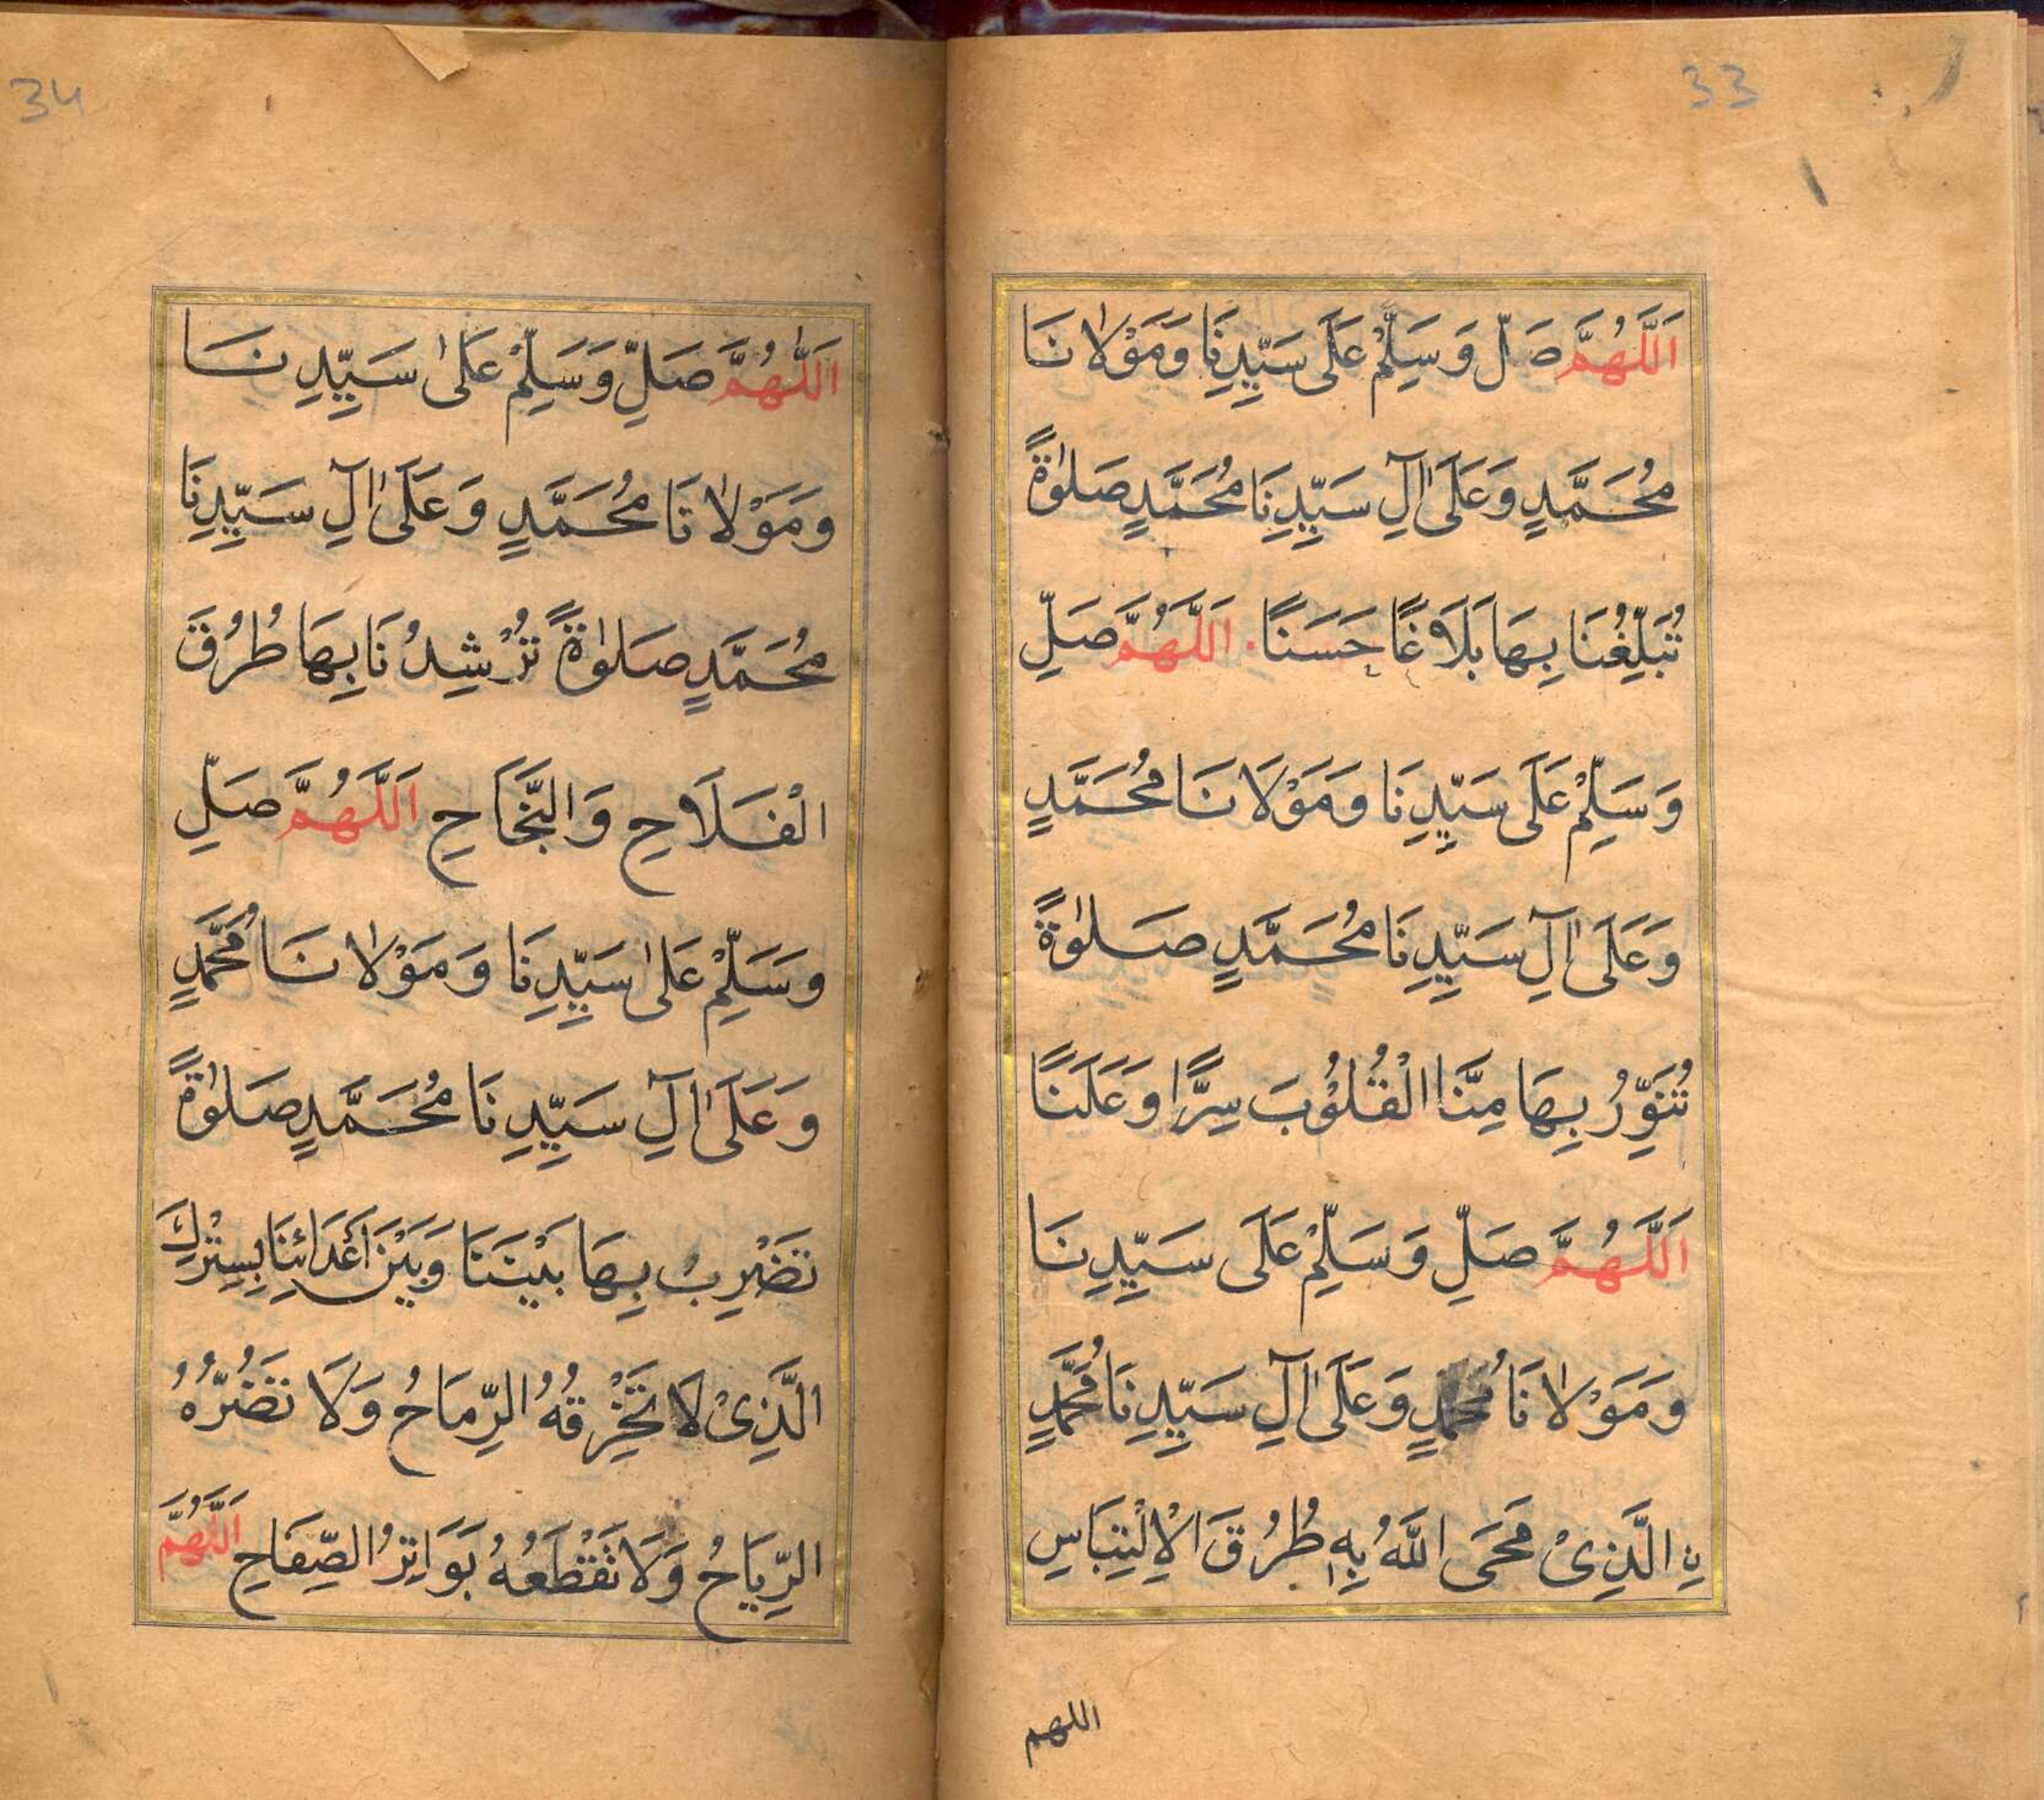 33
اَللَّهُمَّ صَلِّ وَسَلِّمْ عَلَى سَيِّدِنَا وَمَوْلٰانَا
مُحَمَّدٍ وَعَلَىٰ آلِ سَيِّدِنَا مُحَمَّدٍ صَلٰوةً
تُبَلِّغُنَا بِهَا بَلَاغًا حَسَنًا. اَللَّهُمَّ صَلِّ
وَسَلِّمْ عَلَى سَيِّدِنَا وَمَوْلَانَا مُحَمَّدٍ
وَعَلَىٰ آلِ سَيِّدِنَا مُحَمَّدٍ صَلٰوةً
تُنَوِّرُ بِهَا مِنَّا الْقُلُوْبَ سِرًّا وَعَلَنًا
اَللَّهُمَّ صَلِّ وَسَلِّمْ عَلَى سَيِّدِنَا
وَمَوْلٰانَا مُحَمَّدٍ وَعَلَىٰ آلِ سَيِّدِنَا مُحَمَّدٍ
نِ الَّذِىْ مَحَى اللَّهُ بِهٖ طُرُقَ الْاِلْتِبَاسِ
اللهم
34
اَللّٰهُمَّ صَلِّ وَسَلِّمْ عَلىٰ سَيِّدِنَا
وَمَوْلٰانَا مُحَمَّدٍ وَعَلَىٰ آلِ سَيِّدِنَا
مُحَمَّدٍ صَلٰوةً تُرْشِدُنَا بِهَا طُرُقَ
الْفَلَاحِ وَالنَّجَاحِ اَللَّهُمَّ صَلِّ
وَسَلِّمْ عَلىٰ سَيِّدِنَا وَمَوْلٰانَا مُحَمَّدٍ
وَعَلَىٰ آلِ سَيِّدِنَا مُحَمَّدٍ صَلٰوةً
تَضْرِبُ بِهَا بَيْنَنَا وَبَيْنَ اَعْدَائِنَا بِسِتْرِكَ
الَّذِىْ لَا تَخْرِقُهُ الرِّمَاحُ وَلَا تَضُرُّهُ
الرِّيَاحُ وَلَا تَقْطَعُهُ بَوَاتِرُ الصِّفَاحِ اَللَّهُمَّ